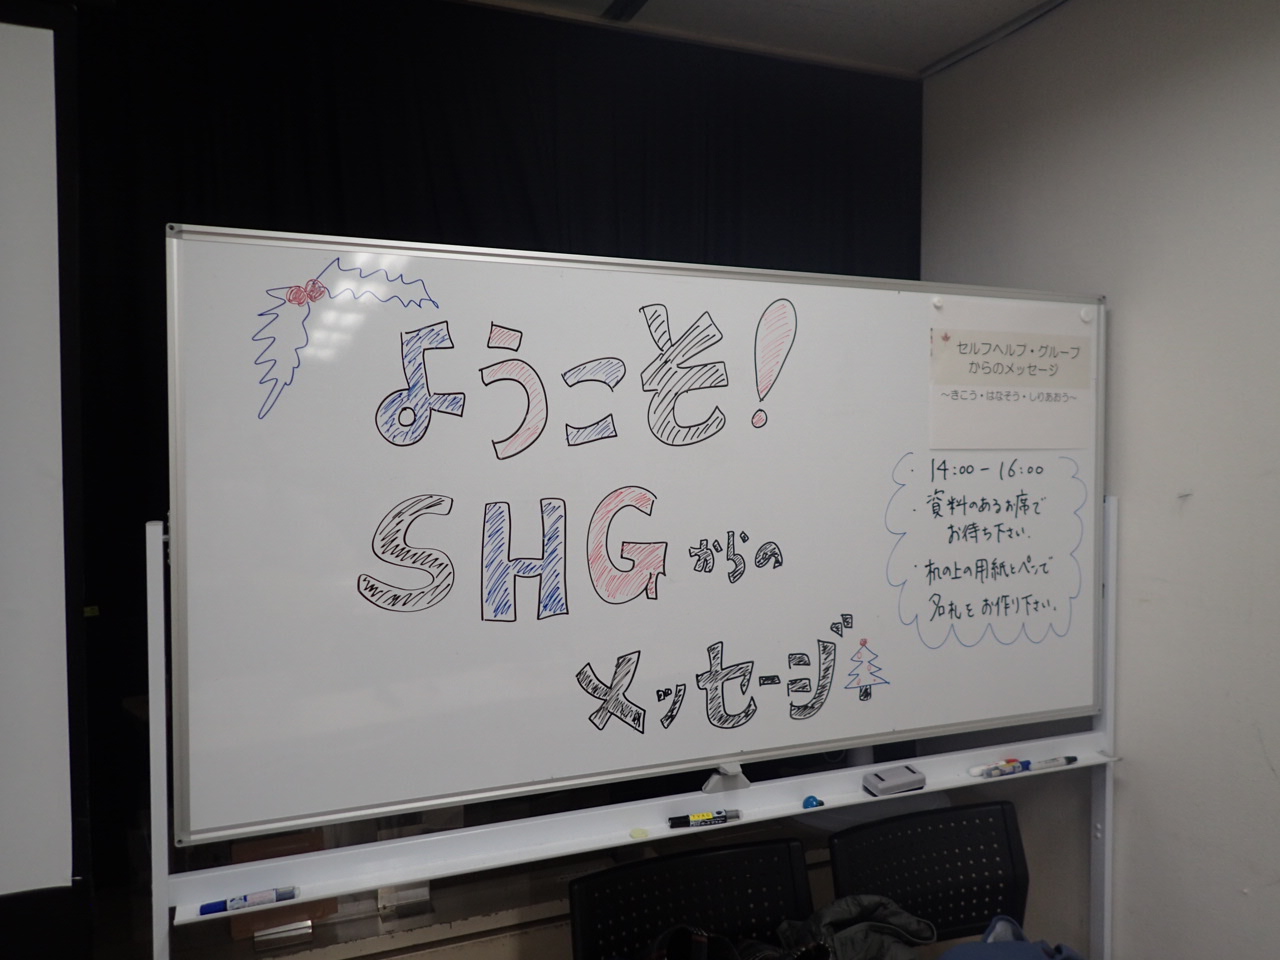 ようこそ!
SHGからの
メッセージ
セルフヘルプ・グループ
からのメッセージ
〜きこう・はなそう・しりあおう〜
・14:00-16:00
・資料のあるお席で
お待ち下さい.
・机の上の用紙とペンで
名札をお作り下さい.